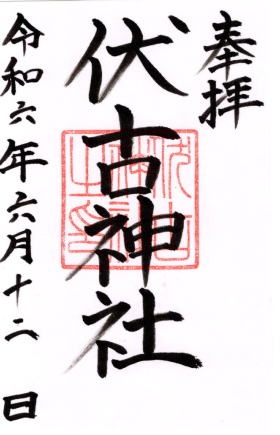 奉拝
伏古神社
令和六年六月十二日